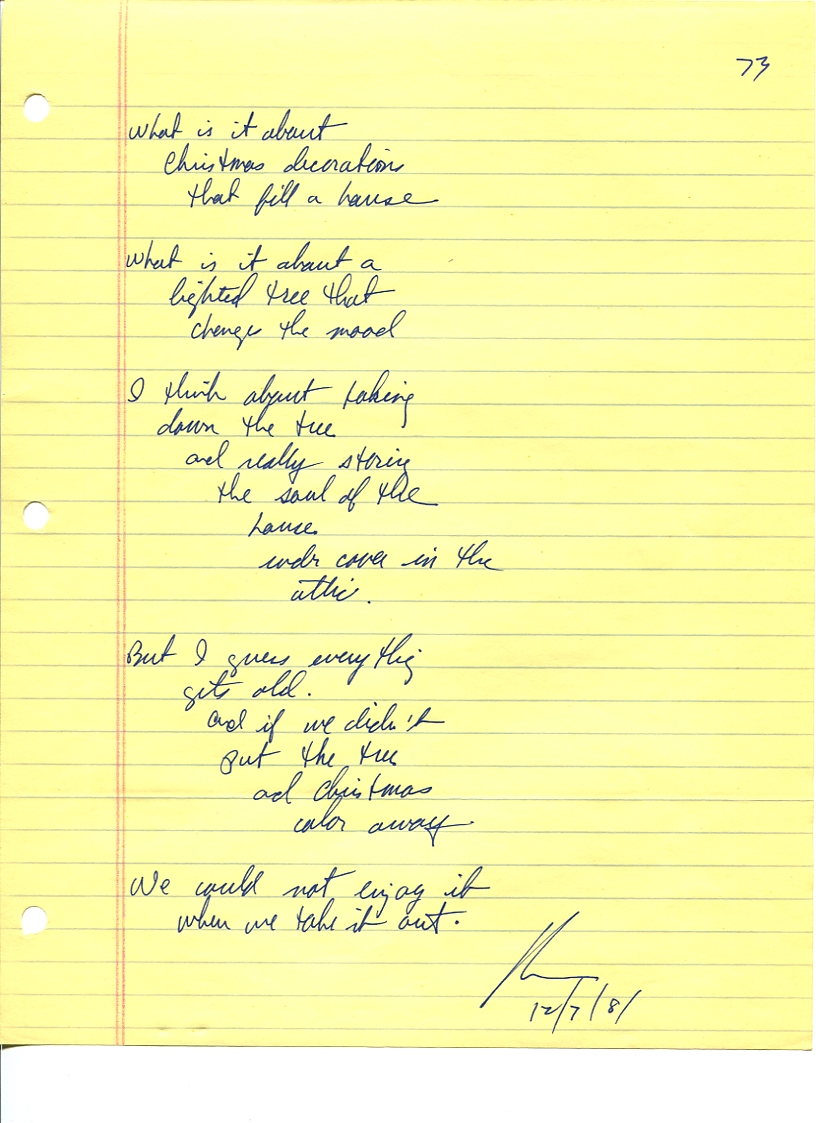 73
What is it about
Christmas decorations
that fill a house
What is it about a
lighted tree that
changes the mood
I think about taking
down the tree
and really storing
the soul of the
house
under cover in the
attic.
But I guess everything
gets old.
and if we didn't
put the tree
and Christmas
color away
We could not enjoy it
when we take it out.
12/7/81